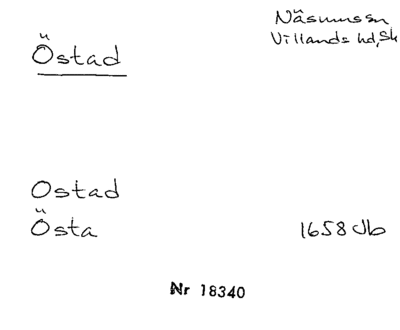 Östad
Näsums sn
Villands hd, Sk
Ostad
Östa
1658 Jb
Nr 18340